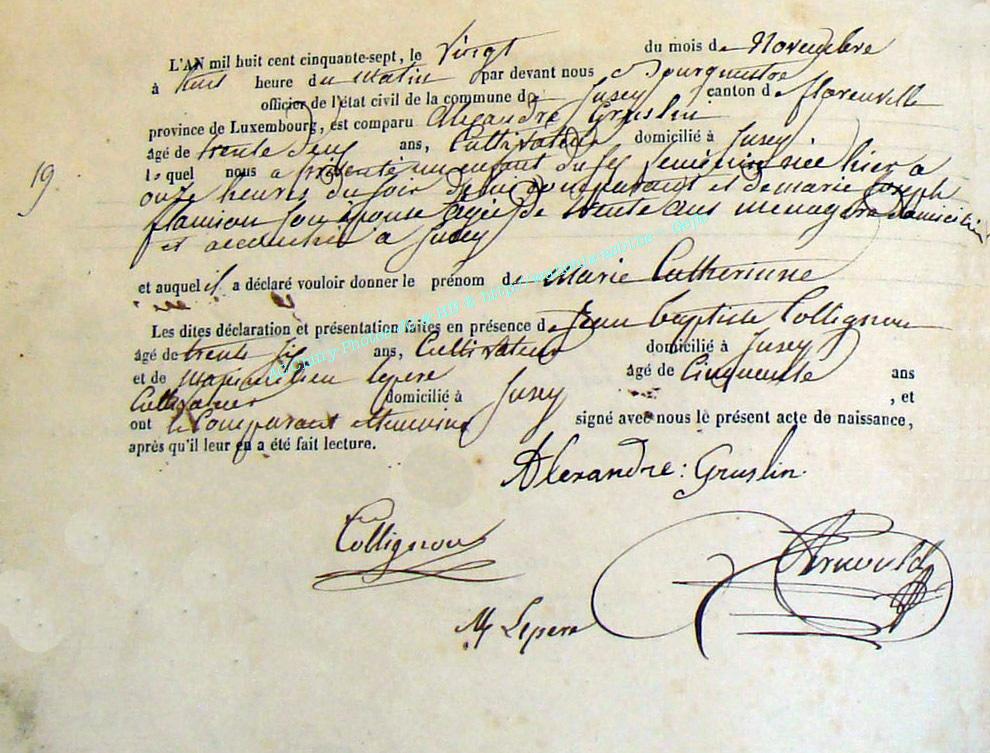 L'AN mil huit cent cinquante-sept, le Vingt du mois de Novembre
à huit heure du matin par devant nous Bourgmestre
officier de l'état civil de la commune de Jusey canton de florenville
province de Luxembourg, est comparu Alexandre Gruslin
âgé de trente deux ans, Cultivateur domicilié à Jusey
lequel nous a présenté un enfant du sexe féminin née hier a
19 onze heures du soir de lui comparant et de marie Joseph
flamion son épouse agée de trente ans menagère domicilié
et accouchée a Jusey
et auquel il a déclaré vouloir donner le prénom de Marie Catherinne
Les dites déclaration et présentation faites en présence de Jean baptiste Collignon
âgé de trente six ans, Cultivateur domicilié à Jusey
et de lepere âgé de Cinquente ans
Cultivateur domicilié à Jusey , et
ont le Comparant et temoins signé avec nous le présent acte de naissance,
après qu'il leur en a été fait lecture.
Alexandre : Gruslin.
Collignon
Arnould
M Lepere